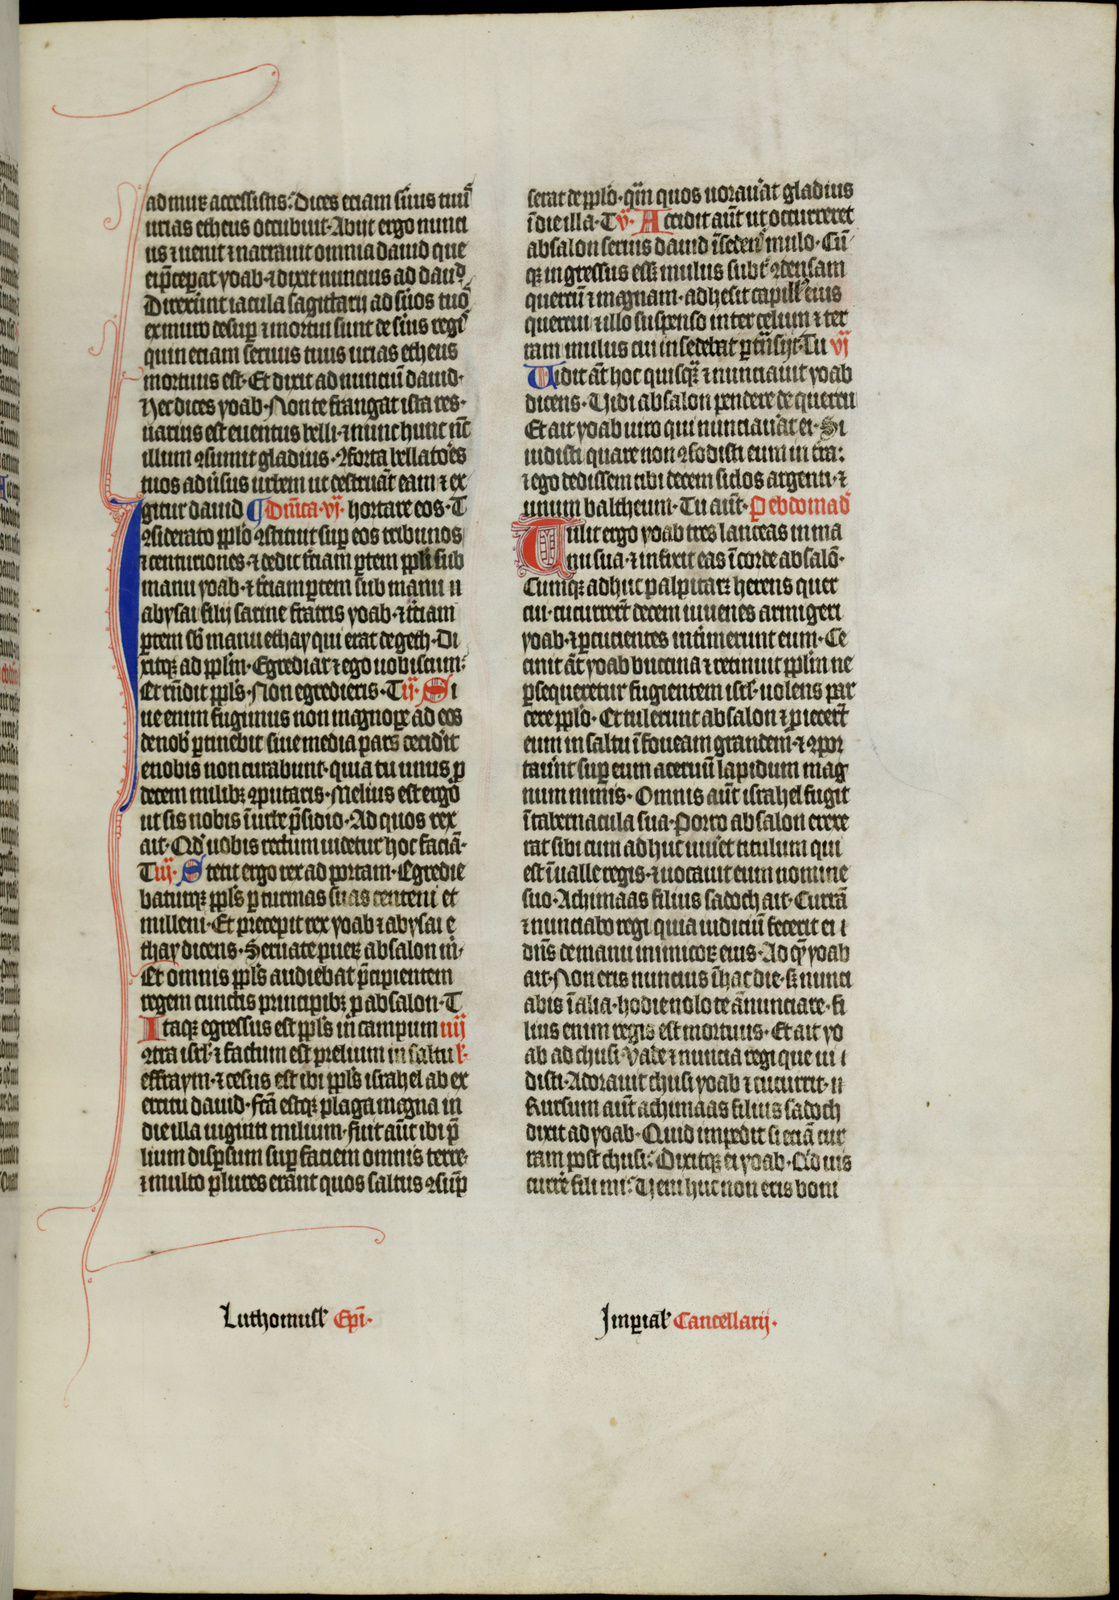 ad muꝝ accessistis. Dices eciam s̄uus tuꝰ
urias etheus occubuit. Abijt ergo nunci
us ⁊ uenit ⁊ narrauit omnia dauid que
ei p̄ceꝑat yoab. ⁊ dixit nuncius ad dauid
Direxer̄ut iacula sagittarij ad s̄uos tuos
ex muro desuꝑ ⁊ mortui sunt de s̄uis regis
quin eciam seruus tuus urias etheus
mortuus est. Et dixit ad nunciū dauid.
Hec dices yoab. Non te frangat ista res.
uarius est euentus belli. ⁊ nunc hunc nūc
illum ꝯsumit gladius. ꝯforta bellatores
tuos adūsus urbem ut destruāt eam ⁊ ex
hortare eos. T
Igitur dauid Dn̄ica vij.
ꝯsiderato pplo ꝯstituit suꝑ eos tribunos
⁊ centuriones. ⁊ dedit t̄ciam ꝑtem ppli sub
manu yoab. ⁊ t̄ciam ꝑtem sub manu
abysai filij saruie fratris yoab. ⁊ t̄ciam
ꝑtem sb̄ manu ethay qui erat de geth. Di
xitqꝫ ad pplm. Egrediar ⁊ ego uobiscum.
Et rn̄dit ppls. Non egredieris. T ij. Si
ue enim fugimus non magnoꝑe ad eos
de nob̄ ꝑtinebit siue media pars cecidit
e nobis non curabunt. quia tu unus ꝓ
decem milibꝫ ꝯputaris. Melius est ergo
ut sis nobis ī urbe p̄sidio. Ad quos rex
ait. Qd̄ uobis rectum uidetur hoc faciā.
T iij. Stetit ergo rex ad portam. Egredie
baturqꝫ ppls ꝑ turmas suas centeni et
milleni. Et precepit rex yoab ⁊ abysai ⁊ e
thay dicens. Seruate pueꝝ absalon m̄.
Et omnis ppls audiebat p̄cipientem
regem cunctis principibꝫ ꝓ absalon. T
Itaqꝫ egressus est ppls in campum iiij
ꝯtra isrl. ⁊ factum est prelium in saltu
effraym. ⁊ cesus est ibi ppls israhel ab ex
ercitu dauid. fcā estqꝫ plaga magna in
die illa uiginti milium. fuit aūt ibi p̄
lium disꝑsum suꝑ faciem omnis terre.
⁊ multo plures erant quos saltus ꝯsūp
serat de pplo. qm̄ quos uorauāt gladius
ī die illa. T v. Accidit aūt ut occurreret
absalon seruis dauid īsedens mulo. Cū
qꝫ ingressus ess; mulus subt̄ ꝯdensam
quercū ⁊ magnam. adhesit capill eius
quercui ⁊ illo suspenso inter celum ⁊ ter
ram mulus cui insedebat ꝑtn̄sijt. Tu vj
Uidit āt hoc quisqꝫ ⁊ nunciauit yoab
dicens. Uidi absalon pendere de quercu
Et ait yoab uiro qui nunciauāt ei. Si
uidisti quare non ꝯfodisti eum in t̄ra:
⁊ ego dedissem tibi decem siclos argenti ⁊
unum baltheum. Tu aūt. Pebdomad
Tulit ergo yoab tres lanceas in ma
nu sua. ⁊ infixit eas ī corde absalō.
Cumqꝫ adhuc palpitaꝝ herens quer
cui. cucurrer̄t decem iuuenes armigeri
yoab. ⁊ ꝑcucientes int̄merunt eum. Ce
cinit āt yoab buccina ⁊ retinuit pplm ne
ꝑsequeretur fugientem isrl. uolens par
cere pplo. Et tulerunt absalon ⁊ ꝓiecer̄t
eum in saltu ī foueam grandem. ⁊ ꝯpor
tauīnt suꝑ eum aceruū lapidum mag
num nimis. Omnis aūt israhel fugit
ī tabernacula sua. Porro absalon erexe
rat sibi cum adhuc uiūet titulum qui
est ī ualle regis. ⁊ uocauit eum nomine
suo. Achimaas filius sadoch ait. Currā
⁊ nunciabo regi quia iudiciū fecerit ei
dn̄s de manu inimicoꝝ eius. Ad qm̄ yoab
ait. Non eris nuncius ī hac die. sꝫ nunci
abis ī alia. hodie nolo te ānunciare. fi
lius enim regis est mortuus. Et ait yo
ab ad chusi. Uade ⁊ nuncia regi que ui
disti. Adorauit chusi yoab ⁊ cucurrit.
Rursum aūt achimaas filius sadoch
dixit ad yoab. Quid impedit si eciā cur
ram post chusi. Dixitqꝫ ei yoab. Qd uis
currē fili mi. Ueni huc non eris boni
Luthomusl̄ Epī.
Imꝑial̄ Cancellarij.